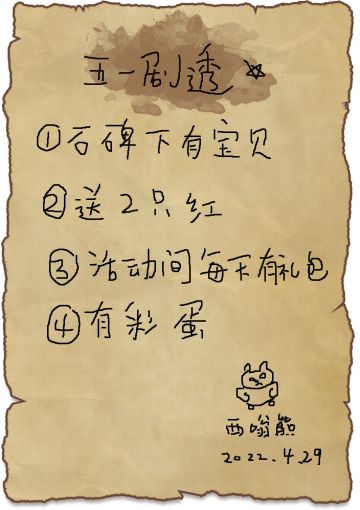 五一剧透
①石碑下有宝贝
②送2只红
③活动间每天有礼包
④有彩蛋
西嗡熊
2022.4.29